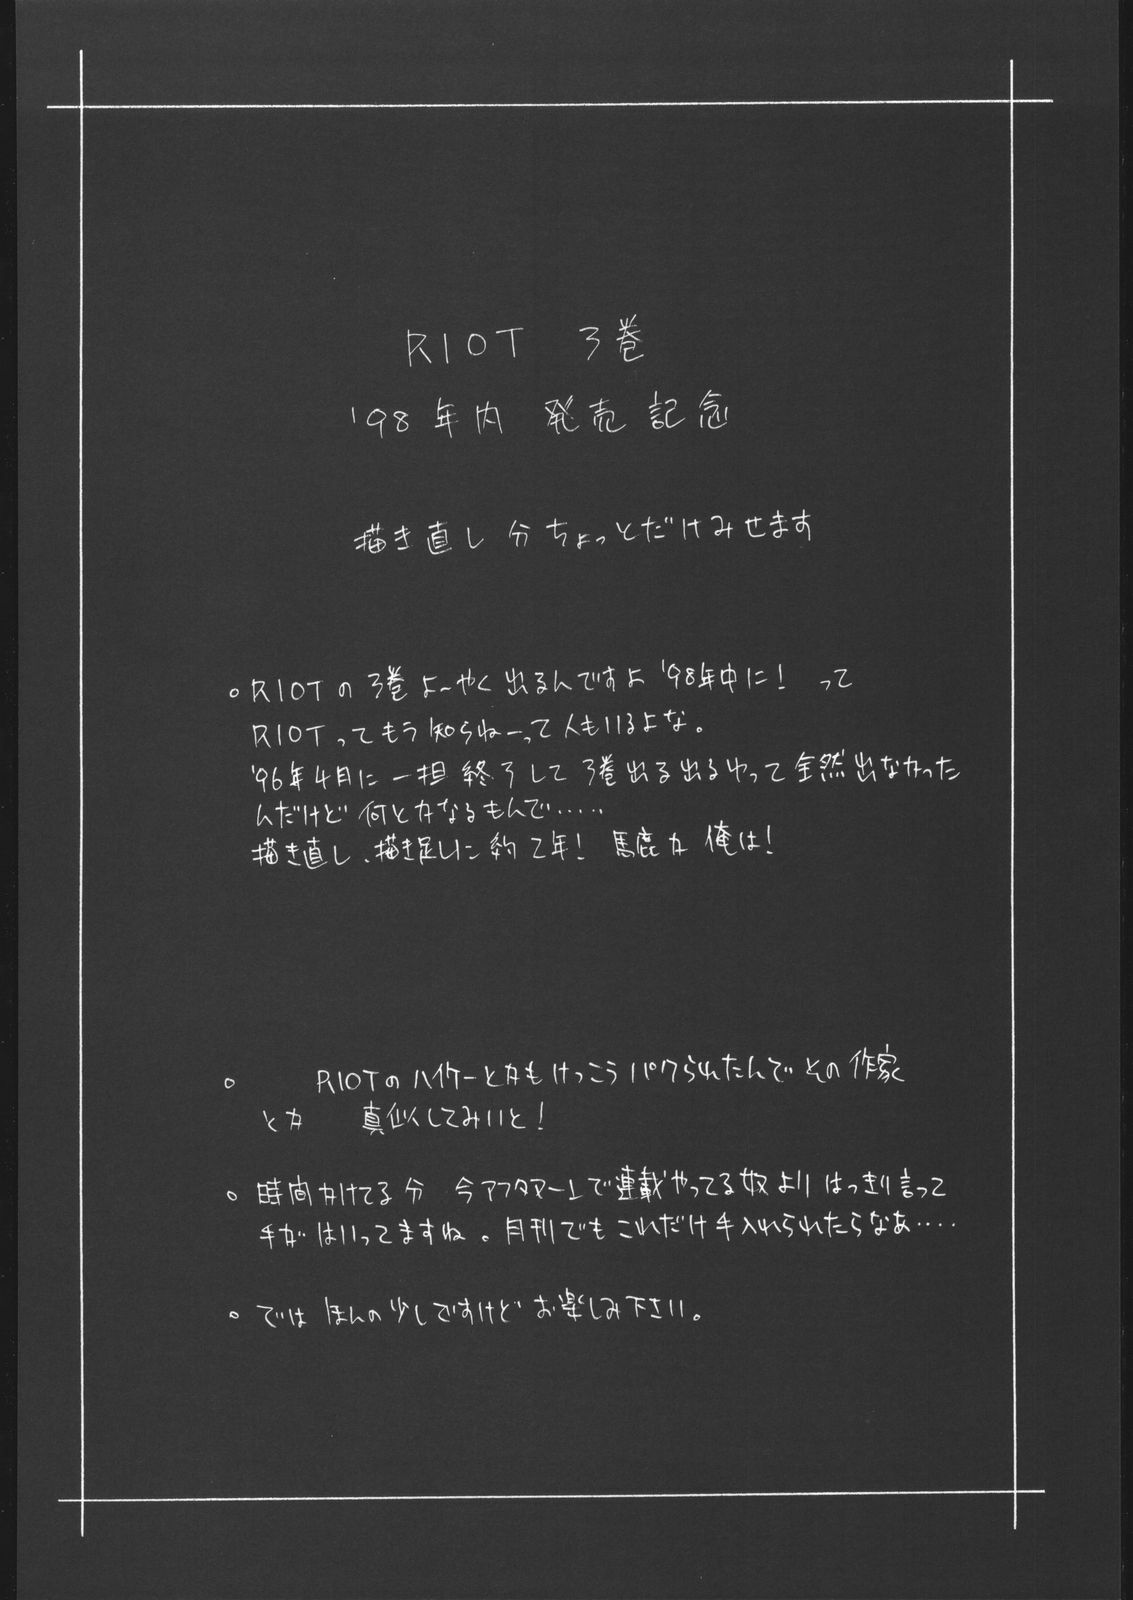 RIOT 3巻
'98年内 発売記念
描き直し分ちょっとだけみせます
。RIOTの3巻よ〜やく出るんですよ'98年中に! って
RIOTってもう知らねーって人もいるよな。
'96年4月に一担終了して3巻出る出るゆって全然出なかった
んだけど何とかなるもんで‥‥‥
描き直し、描き足しに約2年! 馬鹿か俺は!
。 RIOTのハイケーとかもけっこうパクられたんでその作家
とか 真似してみいと!
。時間かけてる分 今アフタヌーンで連載やってる奴よりはっきり言って
手がはいってますね。月刊でもこれだけ手入れられたらなあ‥‥
。では ほんの少しですけど お楽しみ下さい。